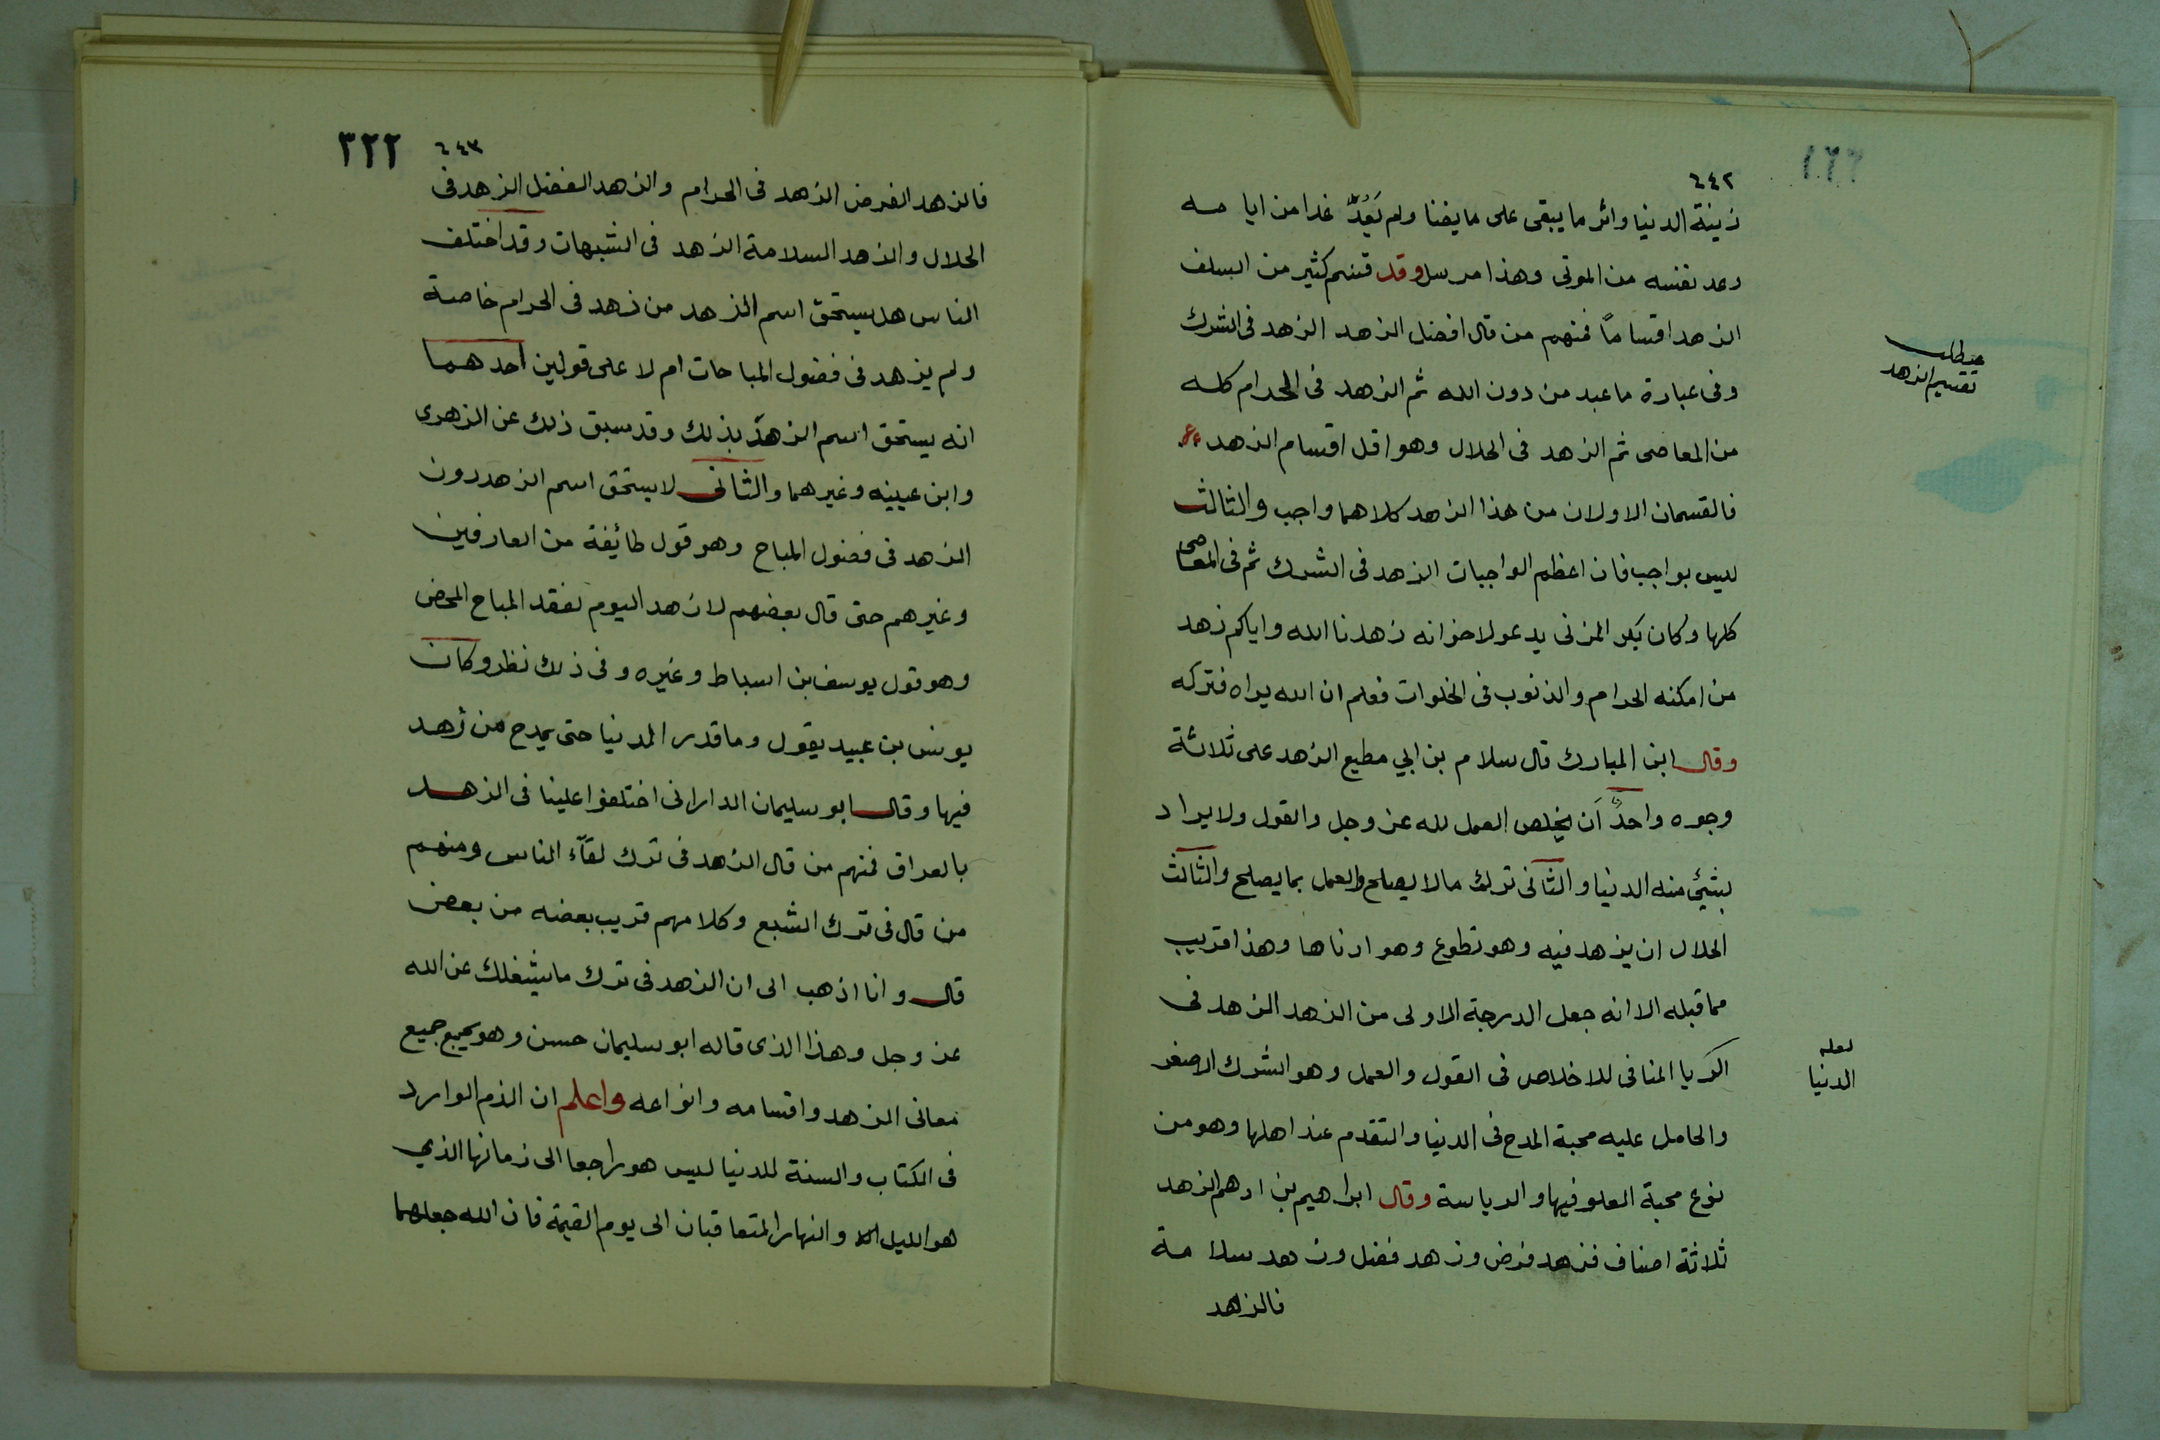 ٦٤٢
زينة الدنيا واثر ما يبقى على ما يفنا ولم يَعُدَّ غدا من ايا مـه
وعد نفسه من الموتى وهذا مرسل وقد قسم كثير من السلف
الزهد اقساماً فمنهم من قال افضل الزهد الزهد فى الشرك
وفى عبارة ما عبد من دون الله ثم الزهد فى الحرام كله
من المعاصى ثم الزهد فى الحلال وهو اقل اقسام الزهد
فالقسمان الاولان من هذا الزهد كلاهما واجب والثالث
ليس بواجب فان اعظم الواجبات الزهد فى الشرك ثم فى المعاصى
كلها وكان بكر المزنى يدعو لاخوانه زهدنا الله واياكم زهد
من امكنه الحرام والذنوب فى الخلوات فعلم ان الله يراه فتركه
وقال ابن المبارك قال سلام بن ابي مطيع الزهد على ثلاثة
وجوه واحدٌ اَن يخلص العمل لله عز وجل والقول ولا يراد
بشيء منه الدنيا والثانى ترك ما لا يصلح والعمل بما يصلح والثالث
الحلال ان يزهد فيه وهو تطوع وهو ادناها وهذا قريب
مما قبله الا انه جعل الدرجة الاولى من الزهد الزهد فى
الريا المنافى للاخلاص فى القول والعمل وهو الشرك الاصغر
والحامل عليه محبة المدح فى الدنيا والتقدم عند اهلها وهو من
نوع محبة العلو فيها والرياسة وقال ابراهيم بن ادهم الزهد
ثلاثة اصناف فزهد فرض وزهد فضل وزهد سلا مـة
فالزهد
مطلب
تقسيم الزهد
لعله
الدنيا
٣٢٢
٦٤٣
فالزهد الفرض الزهد فى الحرام والزهد الفضل الزهد فى
الحلال والزهد السلامة الزهد فى الشبهات وقد اختلف
الناس هل يستحق اسم الزهد من زهد فى الحرام خاصة
ولم يزهد فى فضول المباحات ام لا على قولين احدهما
انه يستحق اسم الزهد بذلك وقد سبق ذلك عن الزهرى
وابن عيينه وغيرهما والثانى لا يستحق اسم الزهد دون
الزهد فى فضول المباح وهو قول طائفة من العارفين
وغيرهم حتى قال بعضهم لا زهد اليوم لفقد المباح المحض
وهو قول يوسف بن اسباط وغيره وفى ذلك نظر وكان
يونس بن عبيد يقول وما قدر الدنيا حتى يمدح من زهد
فيها وقال ابو سليمان الدارانى اختلفوا علينا فى الزهد
بالعراق فمنهم من قال الزهد فى ترك لقآء الناس ومنهم
من قال فى ترك الشبع وكلامهم قريب بعضه من بعض
قال وانا اذهب الى ان الزهد فى ترك ما يشغلك عن الله
عز وجل وهذا الذى قاله ابو سليمان حسن وهو يجمع جميع
معانى الزهد واقسامه وانواعه واعلم ان الذم الوارد
فى الكتاب والسنة للدنيا ليس هو راجعا الى زمانها الذي
هو الليل والنهار المتعاقبان الى يوم القيمة فان الله جعلهما